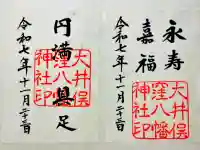 永寿
嘉福
大井俣
窪八幡
神社印
令和七年十一月二十三日
円満具足
大井俣
窪八幡
神社印
令和七年十一月二十三日